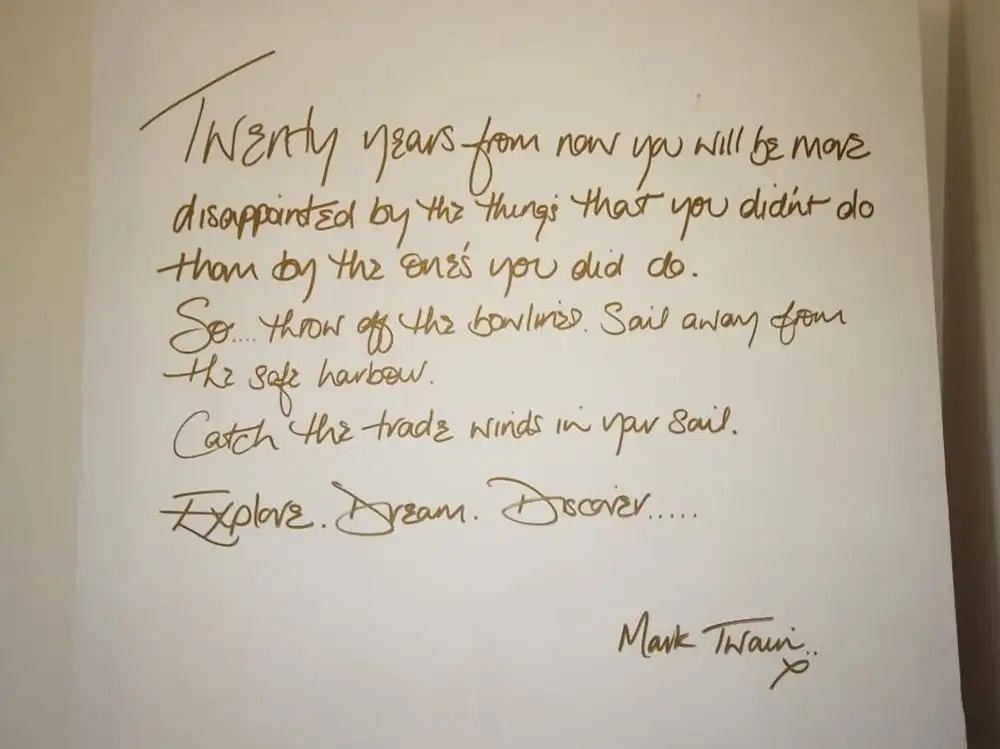 Twenty years from now you will be more
disappointed by the things that you didn't do
than by the one's you did do.
So.... throw off the bowlines. Sail away from
the safe harbour.
Catch the trade winds in your sail.
Explore. Dream. Discover.....
Mark Twain..
x